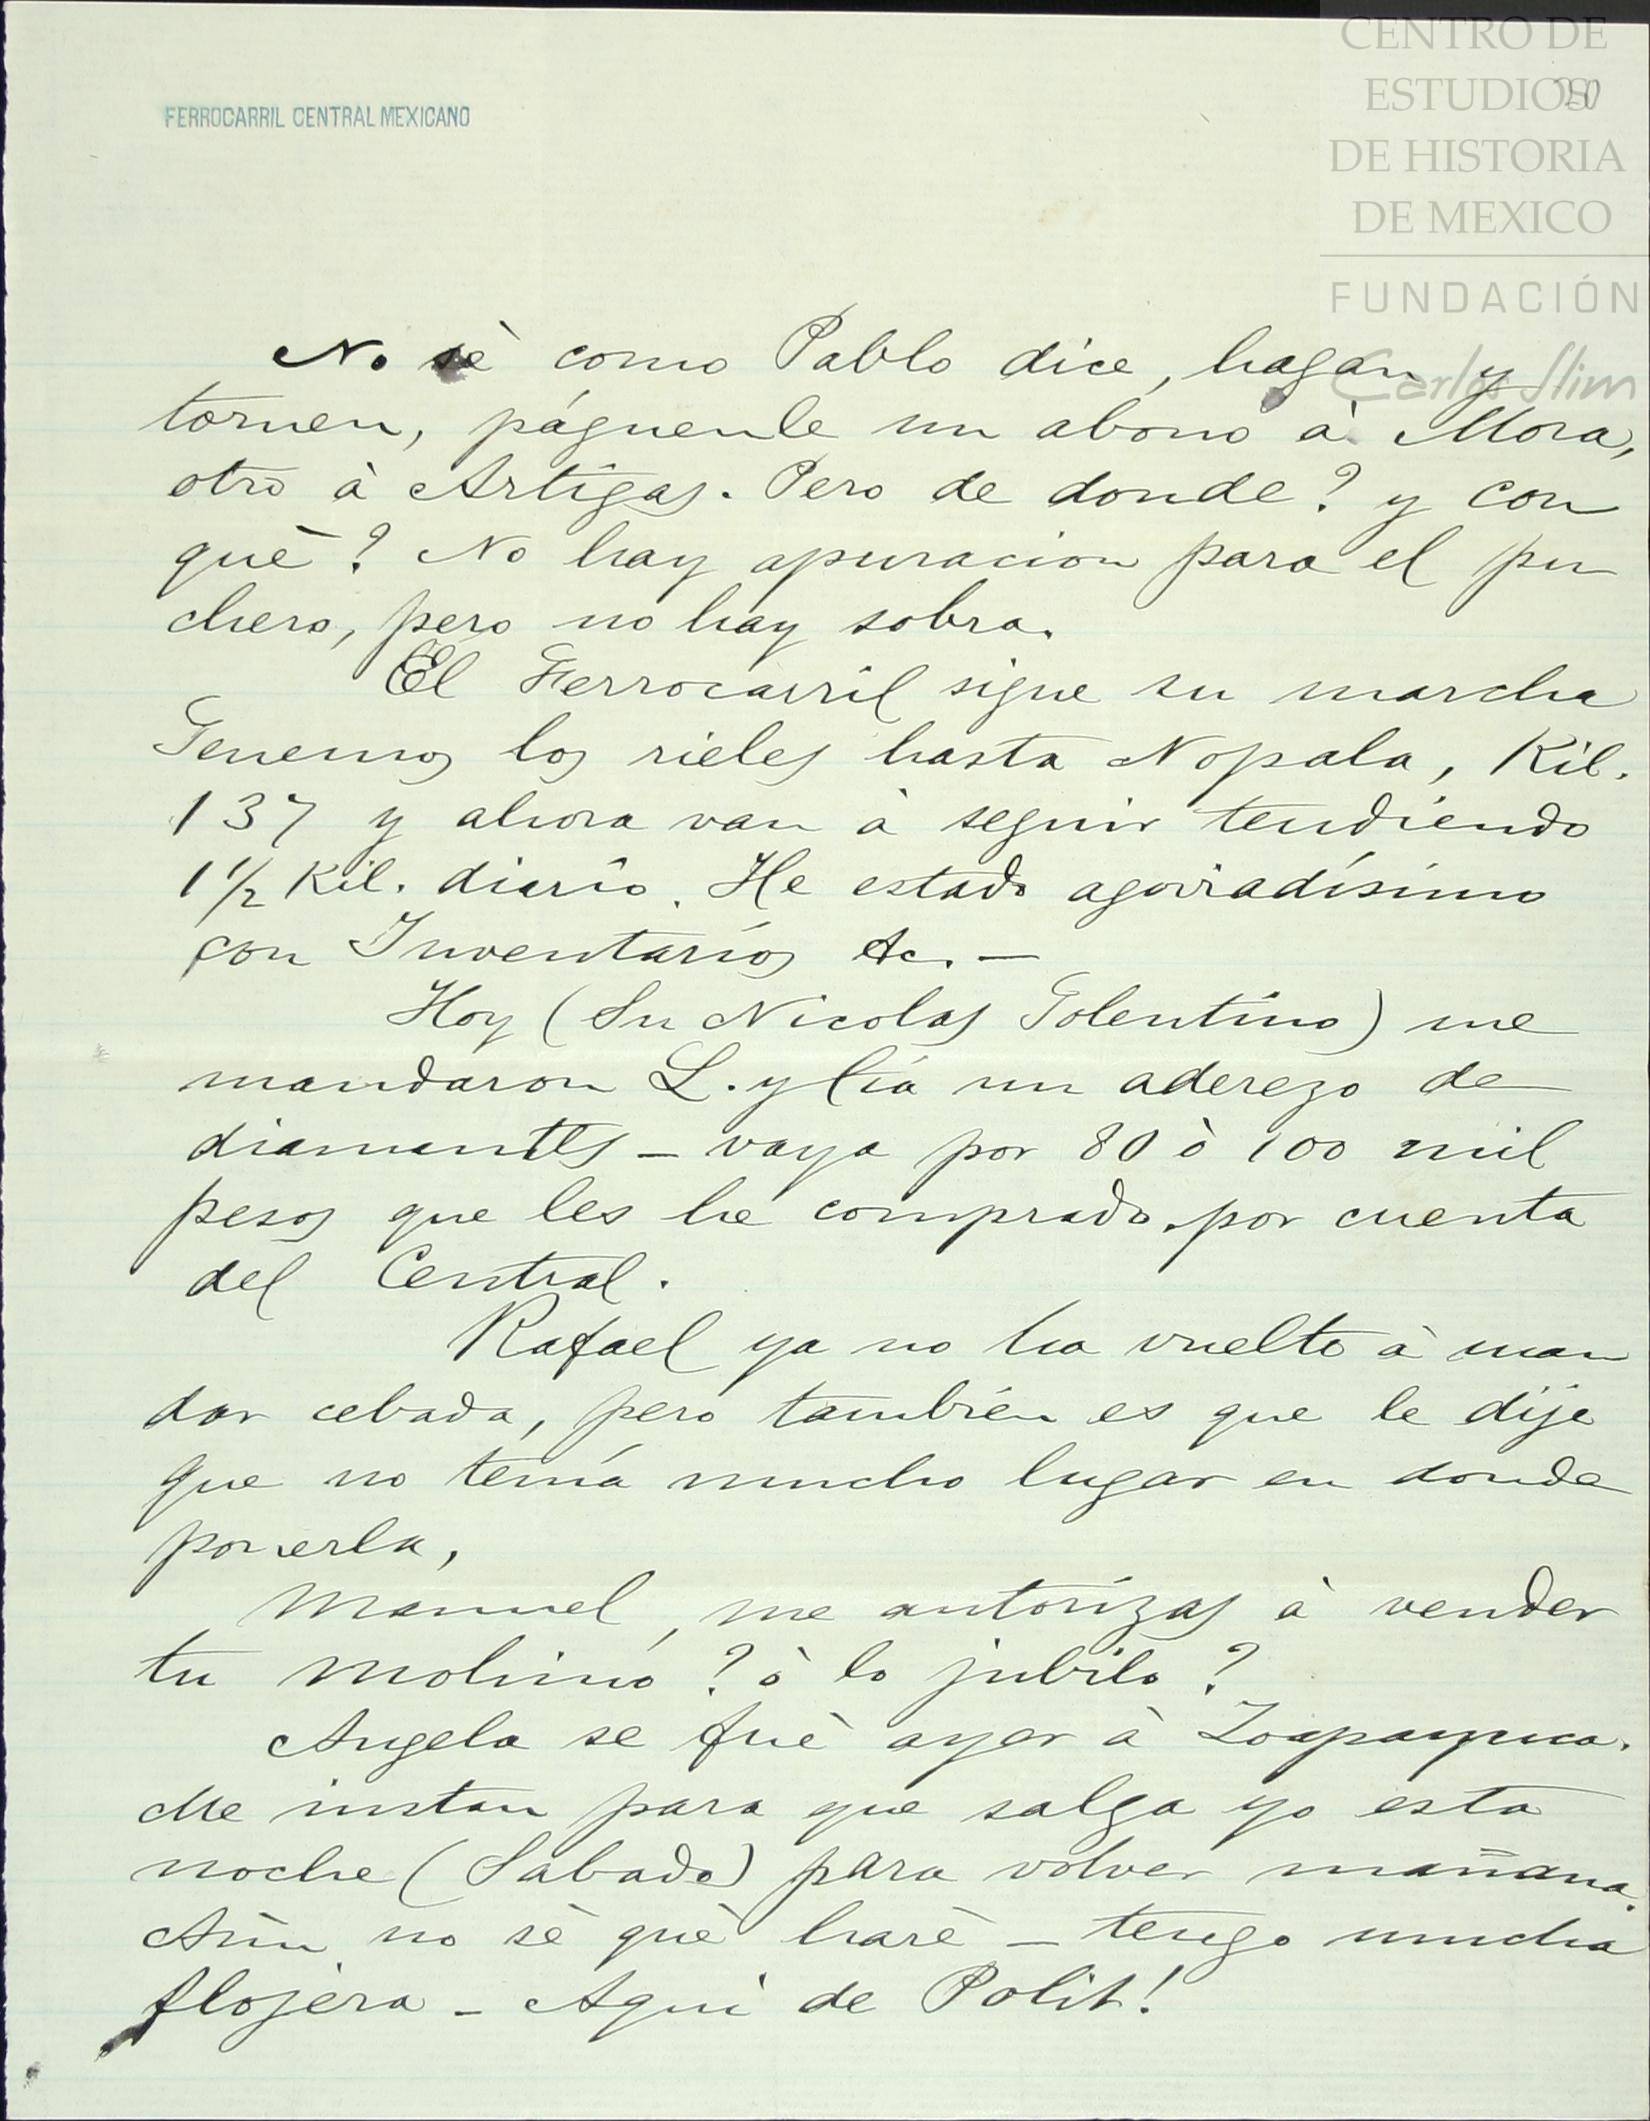 CENTRO DE
ESTUDIOS
20
DE HISTORIA
DE MEXICO
FUNDACIÓN
Carlos Slim
FERROCARRIL CENTRAL MEXICANO
No sè como Pablo dice, hagan y
tornen, páguenle un abono à Mora,
otro à Artigas. Pero de donde? y con
què? No hay apuracion para el pu
chero, pero no hay sobra.
El Ferrocarril sigue su marcha
Tenemos los rieles hasta Nopala, Kil.
137 y ahora van à seguir tendiendo
1 1/2 Kil. diario. He estado agorradísimo
con Inventarios &c. —
Hoy (Sn Nicolas Tolentino) me
mandaron L. y Cía un aderezo de
diamantes — vaya por 80 ò 100 mil
pesos que les he comprado por cuenta
del Central.
Rafael ya no ha vuelto à man
dar cebada, pero también es que le dije
que no tenía mucho lugar en donde
ponerla,
Manuel, me autorizas à vender
tu molino? ò lo jubilo?
Angela se fuè ayer à
Me instan para que salga yo esta
noche (Sabado) para volver mañana.
Aùn no sè què harè — tengo mucha
flojera — Aqui de Polit!